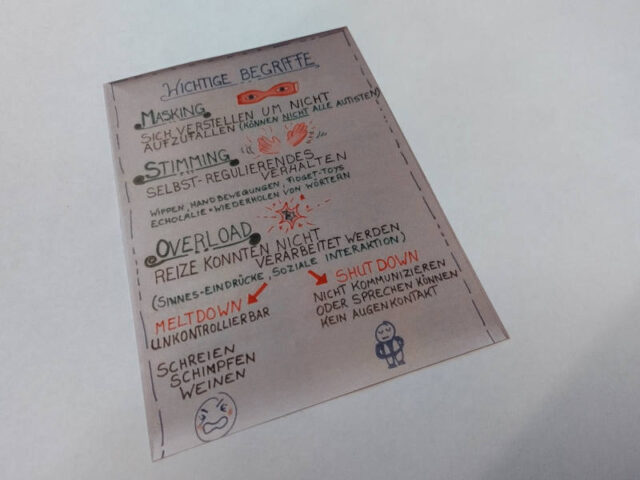 WICHTIGE BEGRIFFE
MASKING
SICH VERSTELLEN UM NICHT
AUFZUFALLEN (KÖNNEN NICHT ALLE AUTISTEN)
STIMMING
SELBST-REGULIERENDES
VERHALTEN
WIPPEN, HANDBEWEGUNGEN, FIDGET-TOYS
ECHOLALIE = WIEDERHOLEN VON WÖRTERN
OVERLOAD
REIZE KONNTEN NICHT
VERARBEITET WERDEN
(SINNES-EINDRÜCKE, SOZIALE INTERAKTION)
MELTDOWN
UNKONTROLLIERBAR
SCHREIEN
SCHIMPFEN
WEINEN
SHUTDOWN
NICHT KOMMUNIZIEREN
ODER SPRECHEN KÖNNEN
KEIN AUGENKONTAKT